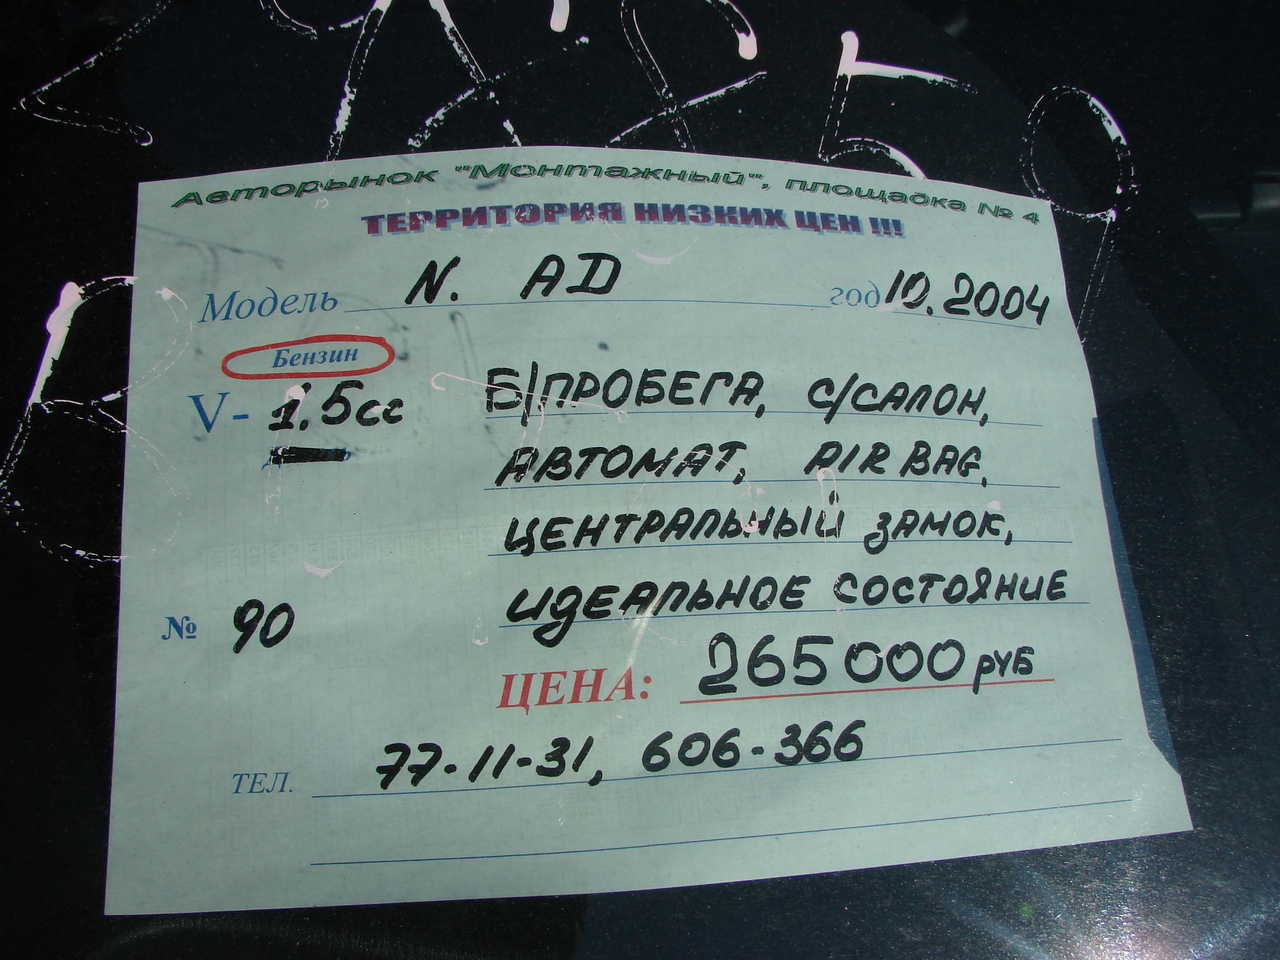 Авторынок "Монтажный", площадка № 4
ТЕРРИТОРИЯ НИЗКИХ ЦЕН !!!
Модель N. AD год 10.2004
Бензин
V- 1.5cc Б/ПРОБЕГА, С/САЛОН,
АВТОМАТ, AIR BAG,
ЦЕНТРАЛЬНЫЙ ЗАМОК,
ИДЕАЛЬНОЕ СОСТОЯНИЕ
№ 90
ЦЕНА: 265000 РУБ
ТЕЛ. 77-11-31, 606-366